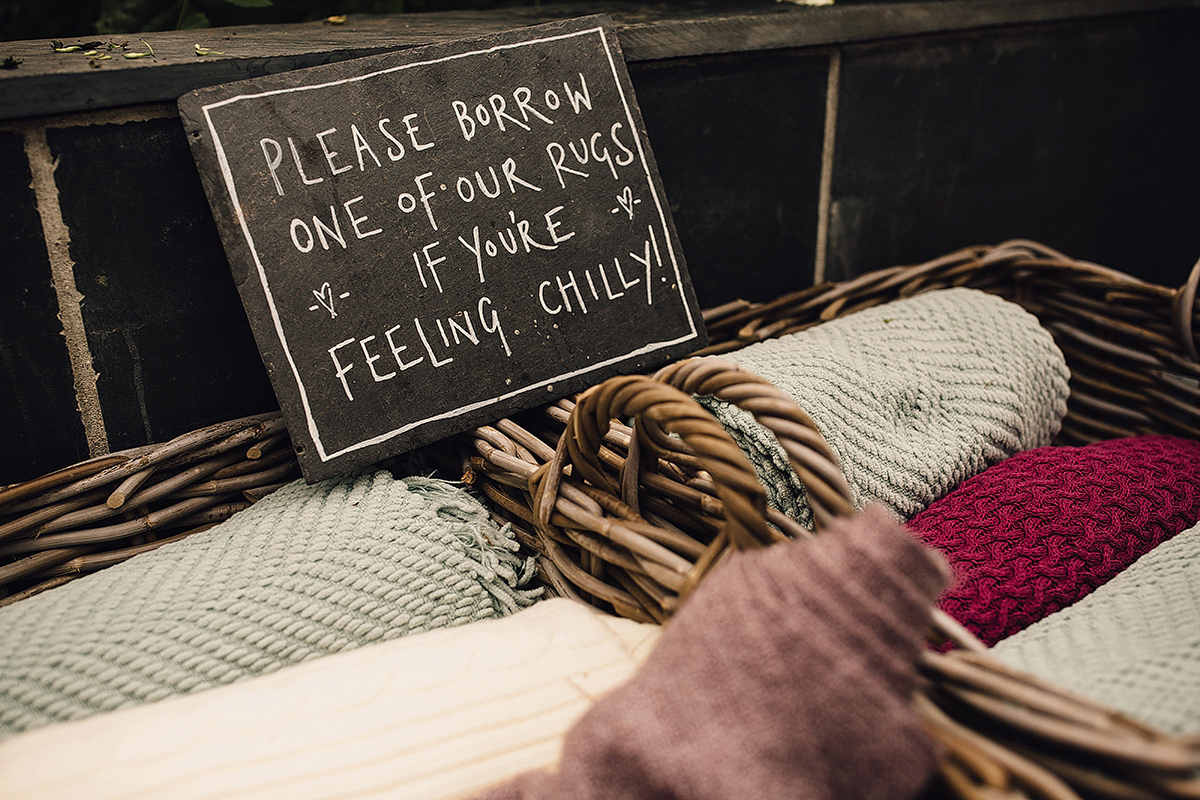 PLEASE BORROW
ONE OF OUR RUGS
IF YOU'RE
FEELING CHILLY!